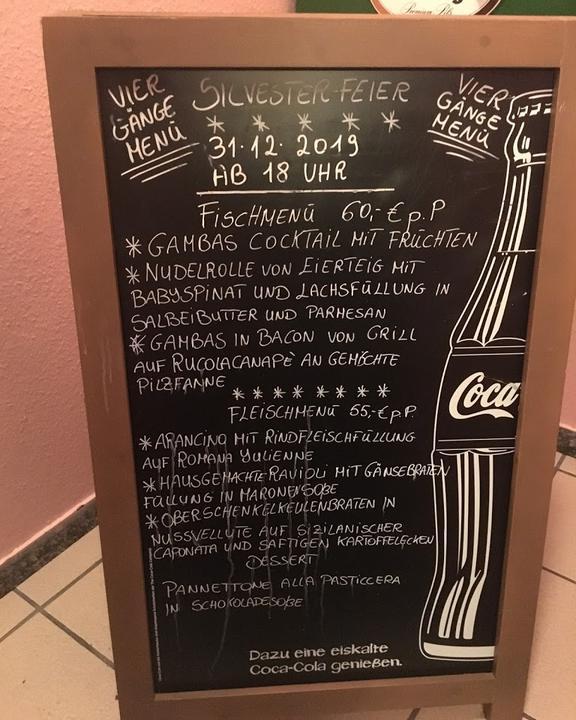 Premium Pils
VIER GÄNGE MENÜ
SILVESTER-FEIER
VIER GÄNGE MENÜ
* * * * *
31.12.2019
AB 18 UHR
FISCHMENÜ 60,-€ p.P
* GAMBAS COCKTAIL MIT FRÜCHTEN
* NUDELROLLE VON EIERTEIG MIT
BABYSPINAT UND LACHSFÜLLUNG IN
SALBEIBUTTER UND PARMESAN
* GAMBAS IN BACON VON GRILL
AUF RUCOLACANAPÈ AN GEMICHTE
PILZPFANNE
* * * * * * * *
FLEISCHMENÜ 55,-€ p.P.
* ARANCINO MIT RINDFLEISCHFÜLLUNG
AUF ROMANA YULIENNE
* HAUSGEMACHTE RAVIOLI MIT GÄNSEBRATEN
FÜLLUNG IN MARONENSOßE
* OBERSCHENKELKEULENBRATEN IN
NUSSVELLUTE AUF SIZILANISCHER
CAPONATA UND SAFTIGEN KARTOFFELECKEN
DESSERT
PANNETTONE ALLA PASTICCERA
IN SCHOKOLADESOßE
Coca
Dazu eine eiskalte
Coca-Cola genießen.